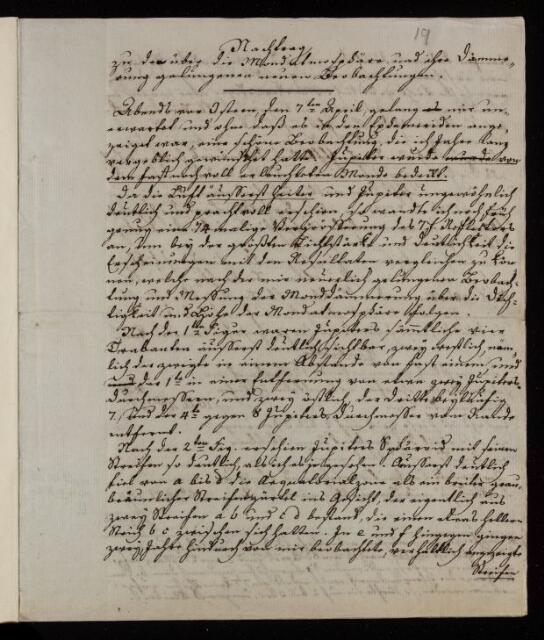 19
Nachtrag
zu den über die Mondatmosphäre und ihre Dämme-
rung gelungenen neuen Beobachtungen.
Abends vor Ostern, den 7ten April, gelang es mir un-
erwartet und ohne daß es in den Ephemeriden ange-
zeiget war, eine schöne Beobachtung, die ich Jahre lang
vergeblich gewünscht hatte. Jupiter wurde von
dem fast noch voll erleuchteten Monde bedeckt.
Da die Luft äusserst heiter und Jupiter ungewöhnlich
deutlich und prachtvoll erschien, so wandte ich noch früh
genug eine 74 malige Vergrösserung des 7f. Reflectors
an, um bey der größten Lichtstärke und Deutlichkeit die
Erscheinungen mit den Resultaten vergleichen zu kön-
nen, welche nach der mir neuerlich gelungenen Beobach-
tung und Messung der Monddämmerung über die Dich-
tigkeit und Höhe der Mondatmosphäre folgen.
Nach der 1ten Figur waren Jupiters sämmtliche vier
Trabanten äusserst deutlich sichtbar, zwey westlich, näm-
lich der zweyte in einem Abstande von fast einem, und
der 1te in einer Entfernung von etwa zwey Jupiters-
Durchmessern, und zwey östlich, der dritte beyläufig
7, und der 4te gegen 8 Jupiters Durchmesser vom Rande
entfernt.
Nach der 2ten Fig. erschien Jupiters Sphäroid mit seinen
Streifen so deutlich, als ich es je gesehen. Äusserst deutlich
fiel von a bis d die Aequatorialzone als ein breiter grau-
bräunlicher Streifengürtel ins Gesicht, der eigentlich aus
zwey Streifen a b und c d bestand, die einen etwas hellern
Strich b c zwischen sich hatten. In e und f hingegen gingen
zwey Jahre hindurch von mir beobachtete,
Streifen